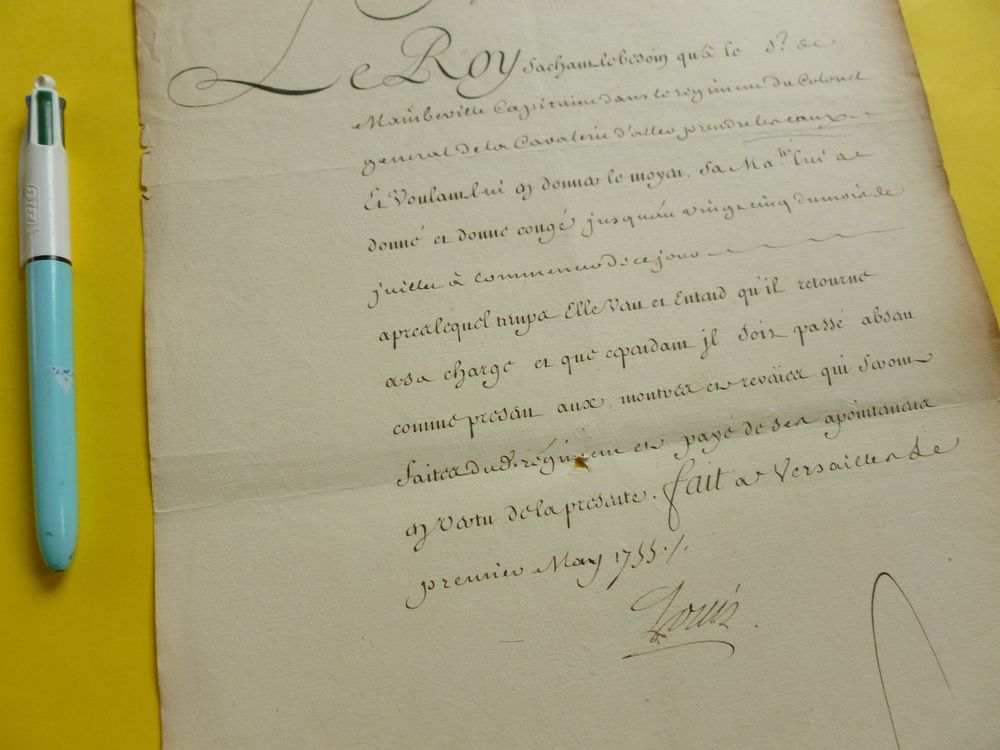 Le Roy Sachant le besoin qu'à le S.r de
Mainbeville Capitaine dans le regiment du Colonel
general de la Cavalerie d'aller prendre les eaux
Et Voulant lui en donner le moyen. Sa Ma.té lui a
donné et donne congé jusqu'au vingt cinq du mois de
juillet à commencer de ce jour
apres lequel temps Elle Veut et Entend qu'il retourne
a sa charge et que cependant jl soit passé absent
comme present aux montres et reveües qui seront
faites dud. regiment et payé de ses apointemens
en vertu de la presente. fait a Versailles le
premier May 1755./.
Louis